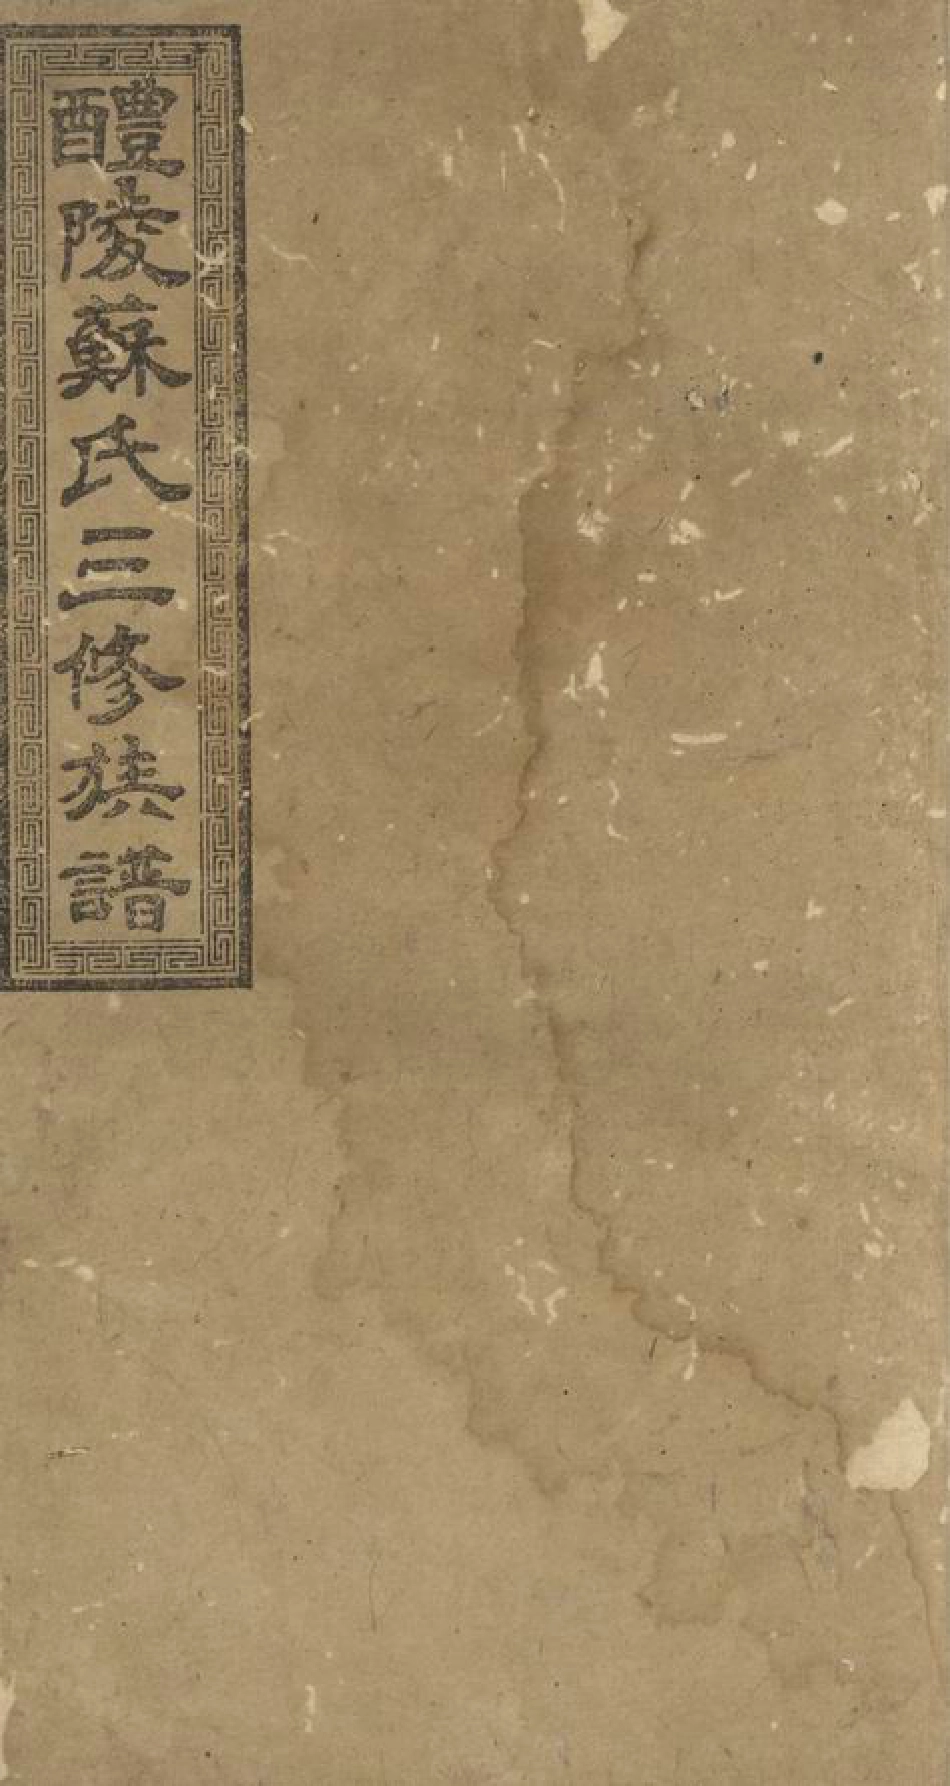 醴陵蘇氏三修族譜